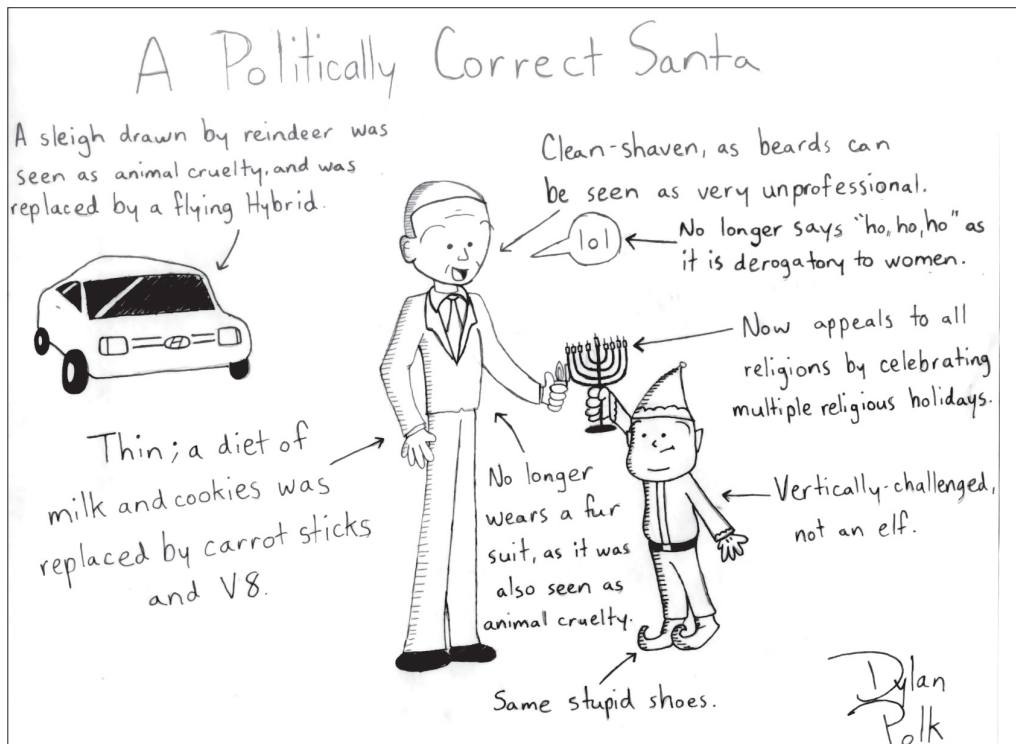 A Politically Correct Santa
A sleigh drawn by reindeer was
seen as animal cruelty, and was
replaced by a flying Hybrid.
Clean-shaven, as beards can
be seen as very unprofessional.
lol
No longer says "ho, ho, ho" as
it is derogatory to women.
Now appeals to all
religions by celebrating
multiple religious holidays.
Thin; a diet of
milk and cookies was
replaced by carrot sticks
and V8.
No longer
wears a fur
suit, as it was
also seen as
animal cruelty.
Vertically-challenged,
not an elf.
Same stupid shoes.
Dylan
Polk